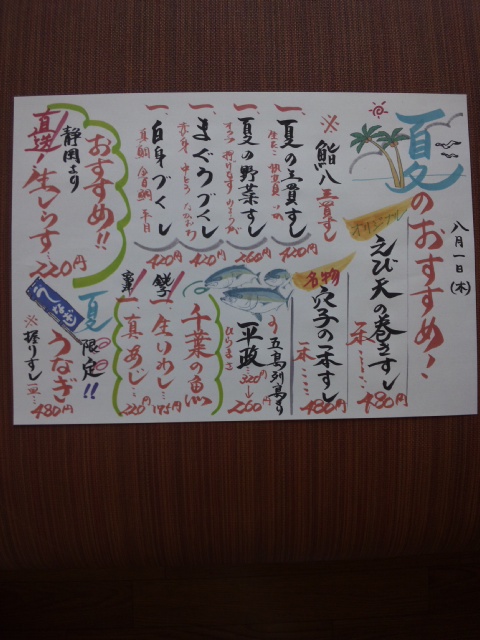 八月一日(木)
夏のおすすめ!
オリジナル
えび天の巻きすし
一本……480円
名物
穴子の一本すし
一本…480円
※鮨八 三貫すし
一、夏の三貫すし
420円
一、夏の野菜すし
260円
一、まぐろづくし
420円
一、白身づくし
420円
五島列島より
平政
ひらまさ
320円
↓
260円
千葉の魚
一、生いわし…
一、真あじ…
220円
おすすめ!!
静岡より
直送!生しらす…220円
夏
限定!!
うなぎ
※握りすし
480円